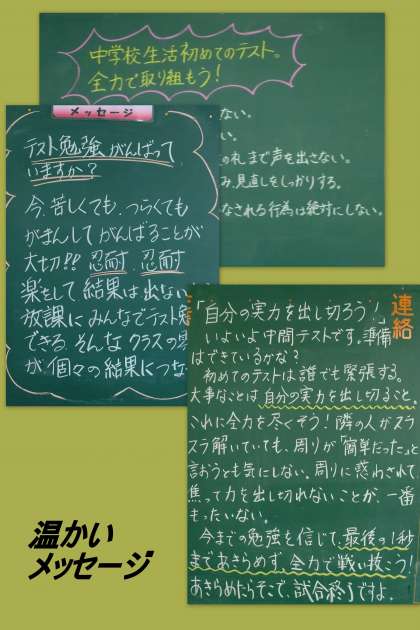 中学校生活初めてのテスト。
全力で取り組もう！
ない。
い。
の礼まで声を出さない。
み、見直しをしっかりする。
なされる行為は絶対にしない。
メッセージ
テスト勉強がんばって
いますか？
今、苦しくても、つらくても
がまんしてがんばることが
大切!! 忍耐、忍耐
楽をして結果は出ない
放課にみんなでテスト勉
できる。そんなクラスの
が、個々の結果につな
連絡
「自分の実力を出し切ろう！」
いよいよ中間テストです。準備
はできているかな？
初めてのテストは誰でも緊張する。
大事なことは自分の実力を出し切ること。
これに全力を尽くそう！隣の人がスラ
スラ解いていても、周りが「簡単だった」と
言おうとも気にしない。周りに惑わされて
焦って力を出し切れないことが、一番
もったいない。
今までの勉強を信じて、最後の1秒
まであきらめず、全力で戦い抜こう！
あきらめたらそこで、試合終了ですよ。
温かい
メッセージ